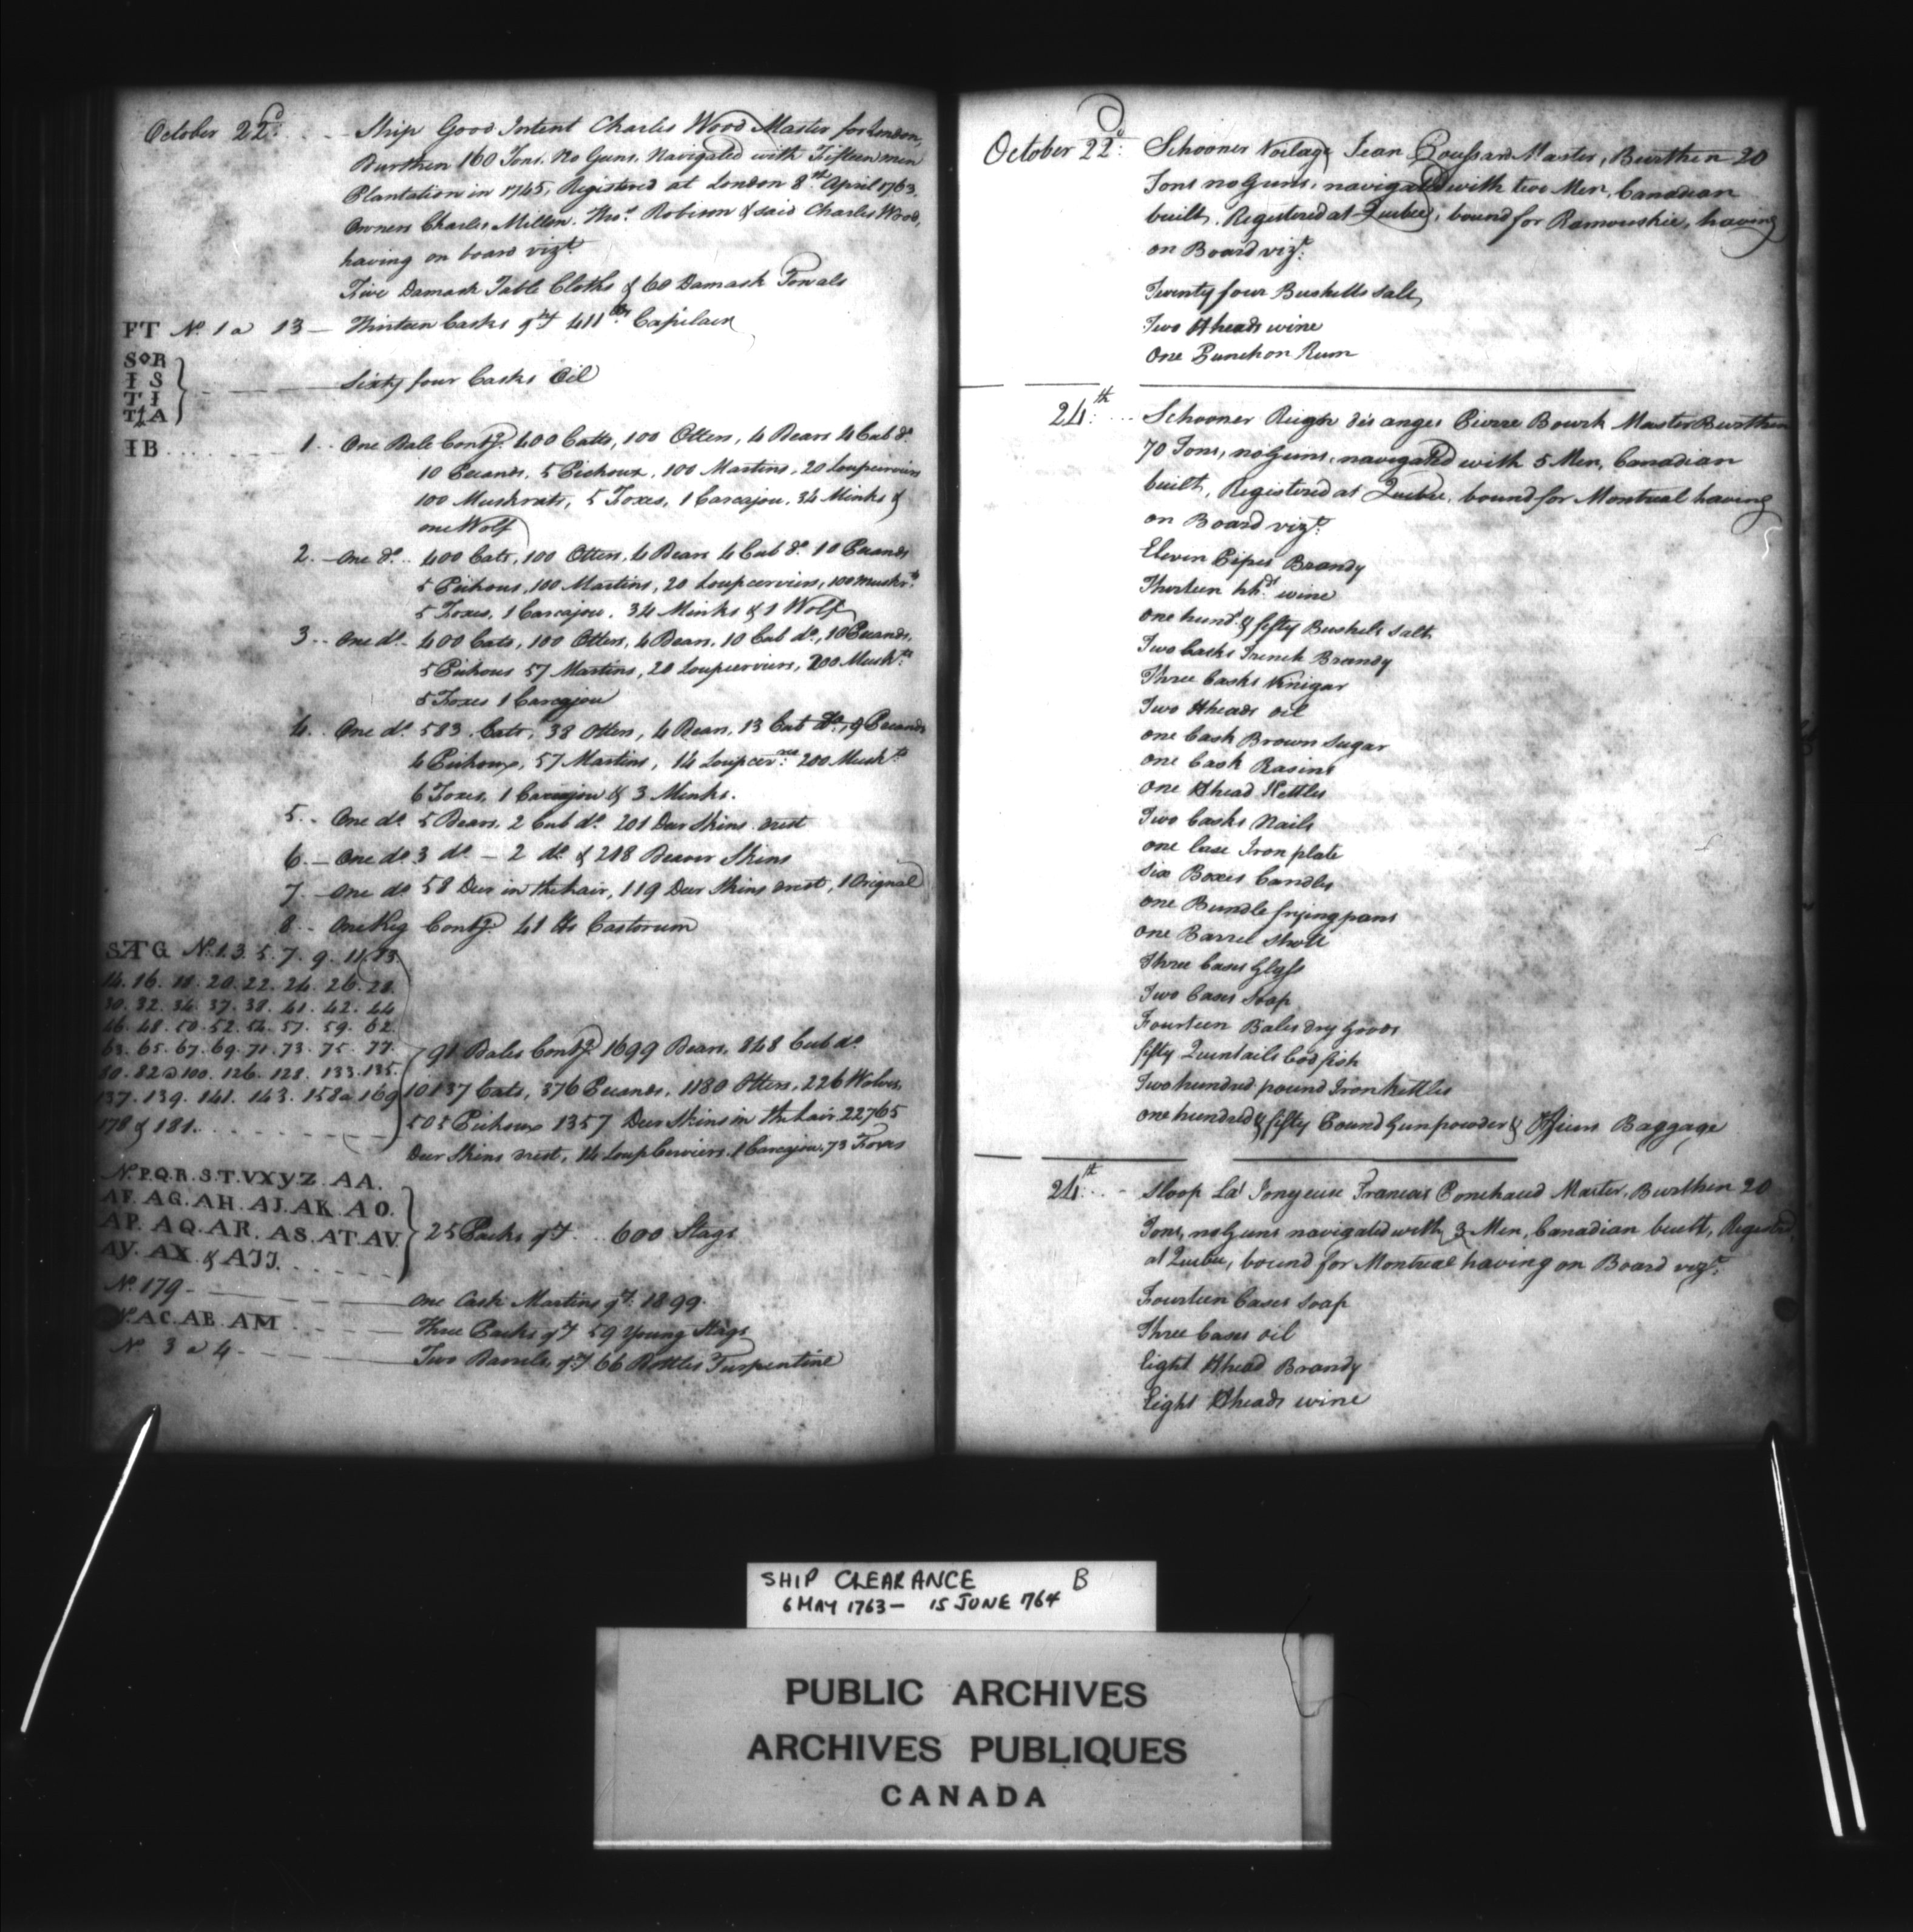 October 22d. Ship Good Intent Charles Wood Master for London,
Burthen 160 Tons. No Guns. Navigated with Fifteen men
Plantation in 1745, Registered at London 8th April 1763.
Owners Charles Millon. Thos. Robison & said Charles Wood,
having on board vizt.
Five Damask Table Cloths & 60 Damask Towals
FT No. 1 a 13 — Thirteen Casks qt 411 Capilair
S◊R
I S
T I
T A
Sixty four Casks Oil
IB 1.. One Bale Contg. 400 Catts, 100 Otters, 4 Bears 4 Cub do.
10 Pecands, 5 Pichoux, 100 Martins, 20 Loupcerviers
100 Muskrats, 5 Foxes, 1 Carcajou, 34 Minks &
one Wolf
2. One do. 400 Cats, 100 Otters, 4 Bears 4 Cub do. 10 Pecands
5 Pichous, 100 Martins, 20 Loupcerviers, 100 muskrts.
5 Foxes, 1 Carcajou, 34 Minks & 1 Wolf
3.. One do. 400 Cats, 100 Otters, 4 Bears, 10 Cub do., 10 Pecands,
5 Pichous 57 Martins, 20 Loupcerviers, 200 Muskts.
5 Foxes 1 Carcajou
4. One do. 583 Cats, 38 Otters, 4 Bears, 13 Cub do., 9 Pecands
4 Pichoux, 57 Martins, 14 Loupcerrs. 200 Muskts.
6 Foxes, 1 Carcajou & 3 Minks.
5.. One do. 5 Bears, 2 Cub do. 201 Deer Skins drest
6.— One do. 3 do. — 2 do. & 218 Beaver Skins
7— One do. 58 Deer in the hair, 119 Deer Skins drest, 1 Orignal
8.. One Keg Contg. 41 lbs Castorum
SATG No. 1. 3. 5. 7. 9. 11. 13.
14. 16. 18. 20. 22. 24. 26. 28.
30. 32. 34. 37. 38. 41. 42. 44
46. 48. 50. 52. 54. 57. 59. 62.
63. 65. 67. 69. 71. 73. 75. 77.
80. 82 a 100. 126. 128. 133. 135.
137. 139. 141. 143. 158 a 169
178 & 181.
91 Bales Contg. 1699 Bears, 848 Cub do.
10137 Cats, 376 Pecands, 1180 Otters, 226 Wolves,
505 Pichoux 1357 Deer Skins in the hair 22765
Deer Skins drest, 14 Loup Cerviers. 1 Carcajou. 73 Foxes
No. P. Q. R. S. T. V X Y Z. AA.
AF. AG. AH. AJ. AK. AO.
AP. AQ. AR. AS. AT. AV.
AY. AX. & AJJ.
25 Packs qt 600 Stags
No. 179 — One Cask Martins qt. 1899.
No. AC. AB. AM Three Packs qt 59 Young Stags
No. 3 a 4 — Two Barrels qt 66 Bottles Turpentine
October 22d. Schooner Voilage Jean Goussard Master, Burthen 20
Tons no Guns, navigated with two Men, Canadian
built, Registered at Quebec, bound for Ramouskie, having
on Board vizt.
Twenty four Bushells salt
Two Hheads wine
One Punchon Rum
24th. Schooner Reign des anges Pierre Bourk Master Burthen
70 Tons, no Guns, navigated with 5 Men, Canadian
built, Registered at Quebec, bound for Montreal having
on Board vizt.
Eleven Pipes Brandy
Thirteen hhds wine
one hund. & fifty Bushels salt
Two Casks French Brandy
Three Casks Vinigar
Two Hheads oil
one Cask Brown Sugar
one Cask Rasins
One Hhead Kettles
Two Casks Nails
one Case Iron plate
six Boxes Candles
one Bundle fryingpans
one Barrel Shott
Three Cases Glass
Two Cases Soap
Fourteen Bales dry Goods
fifty Quintails Cod fish
Two hundred pound Iron Kettles
one hundred & fifty Pound Gunpowder & Officers Baggage
24th. Sloop La Jonyeuse Francais Ponchaud Master, Burthen 20
Tons, no Guns navigated with 3 Men, Canadian built, Registred
at Quebec, bound for Montreal having on Board vizt.
Fourteen Cases Soap
Three Cases oil
Eight Hhead Brandy
Eight Hheads wine
SHIP CLEARANCE B
6 MAY 1763 — 15 JUNE 764
PUBLIC ARCHIVES
ARCHIVES PUBLIQUES
CANADA